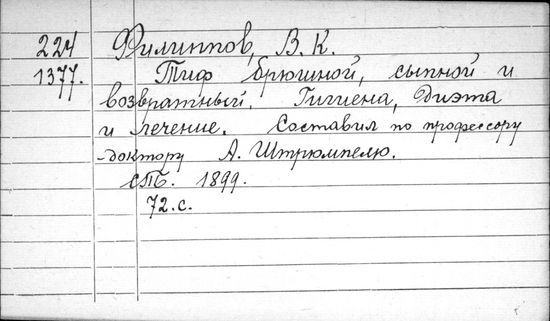 224 Филиппов, В. К.
1377. Тиф брюшной, сыпной и
возвратный. Гигиена, Диэта
и лечение. Составил по профессору
-доктору А. Штрюмпелю.
СПБ. 1899.
72.с.